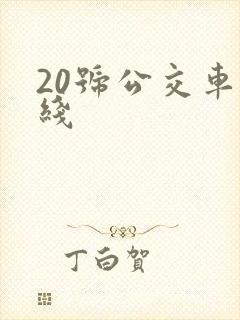 20號公交車
綫
丁白賀